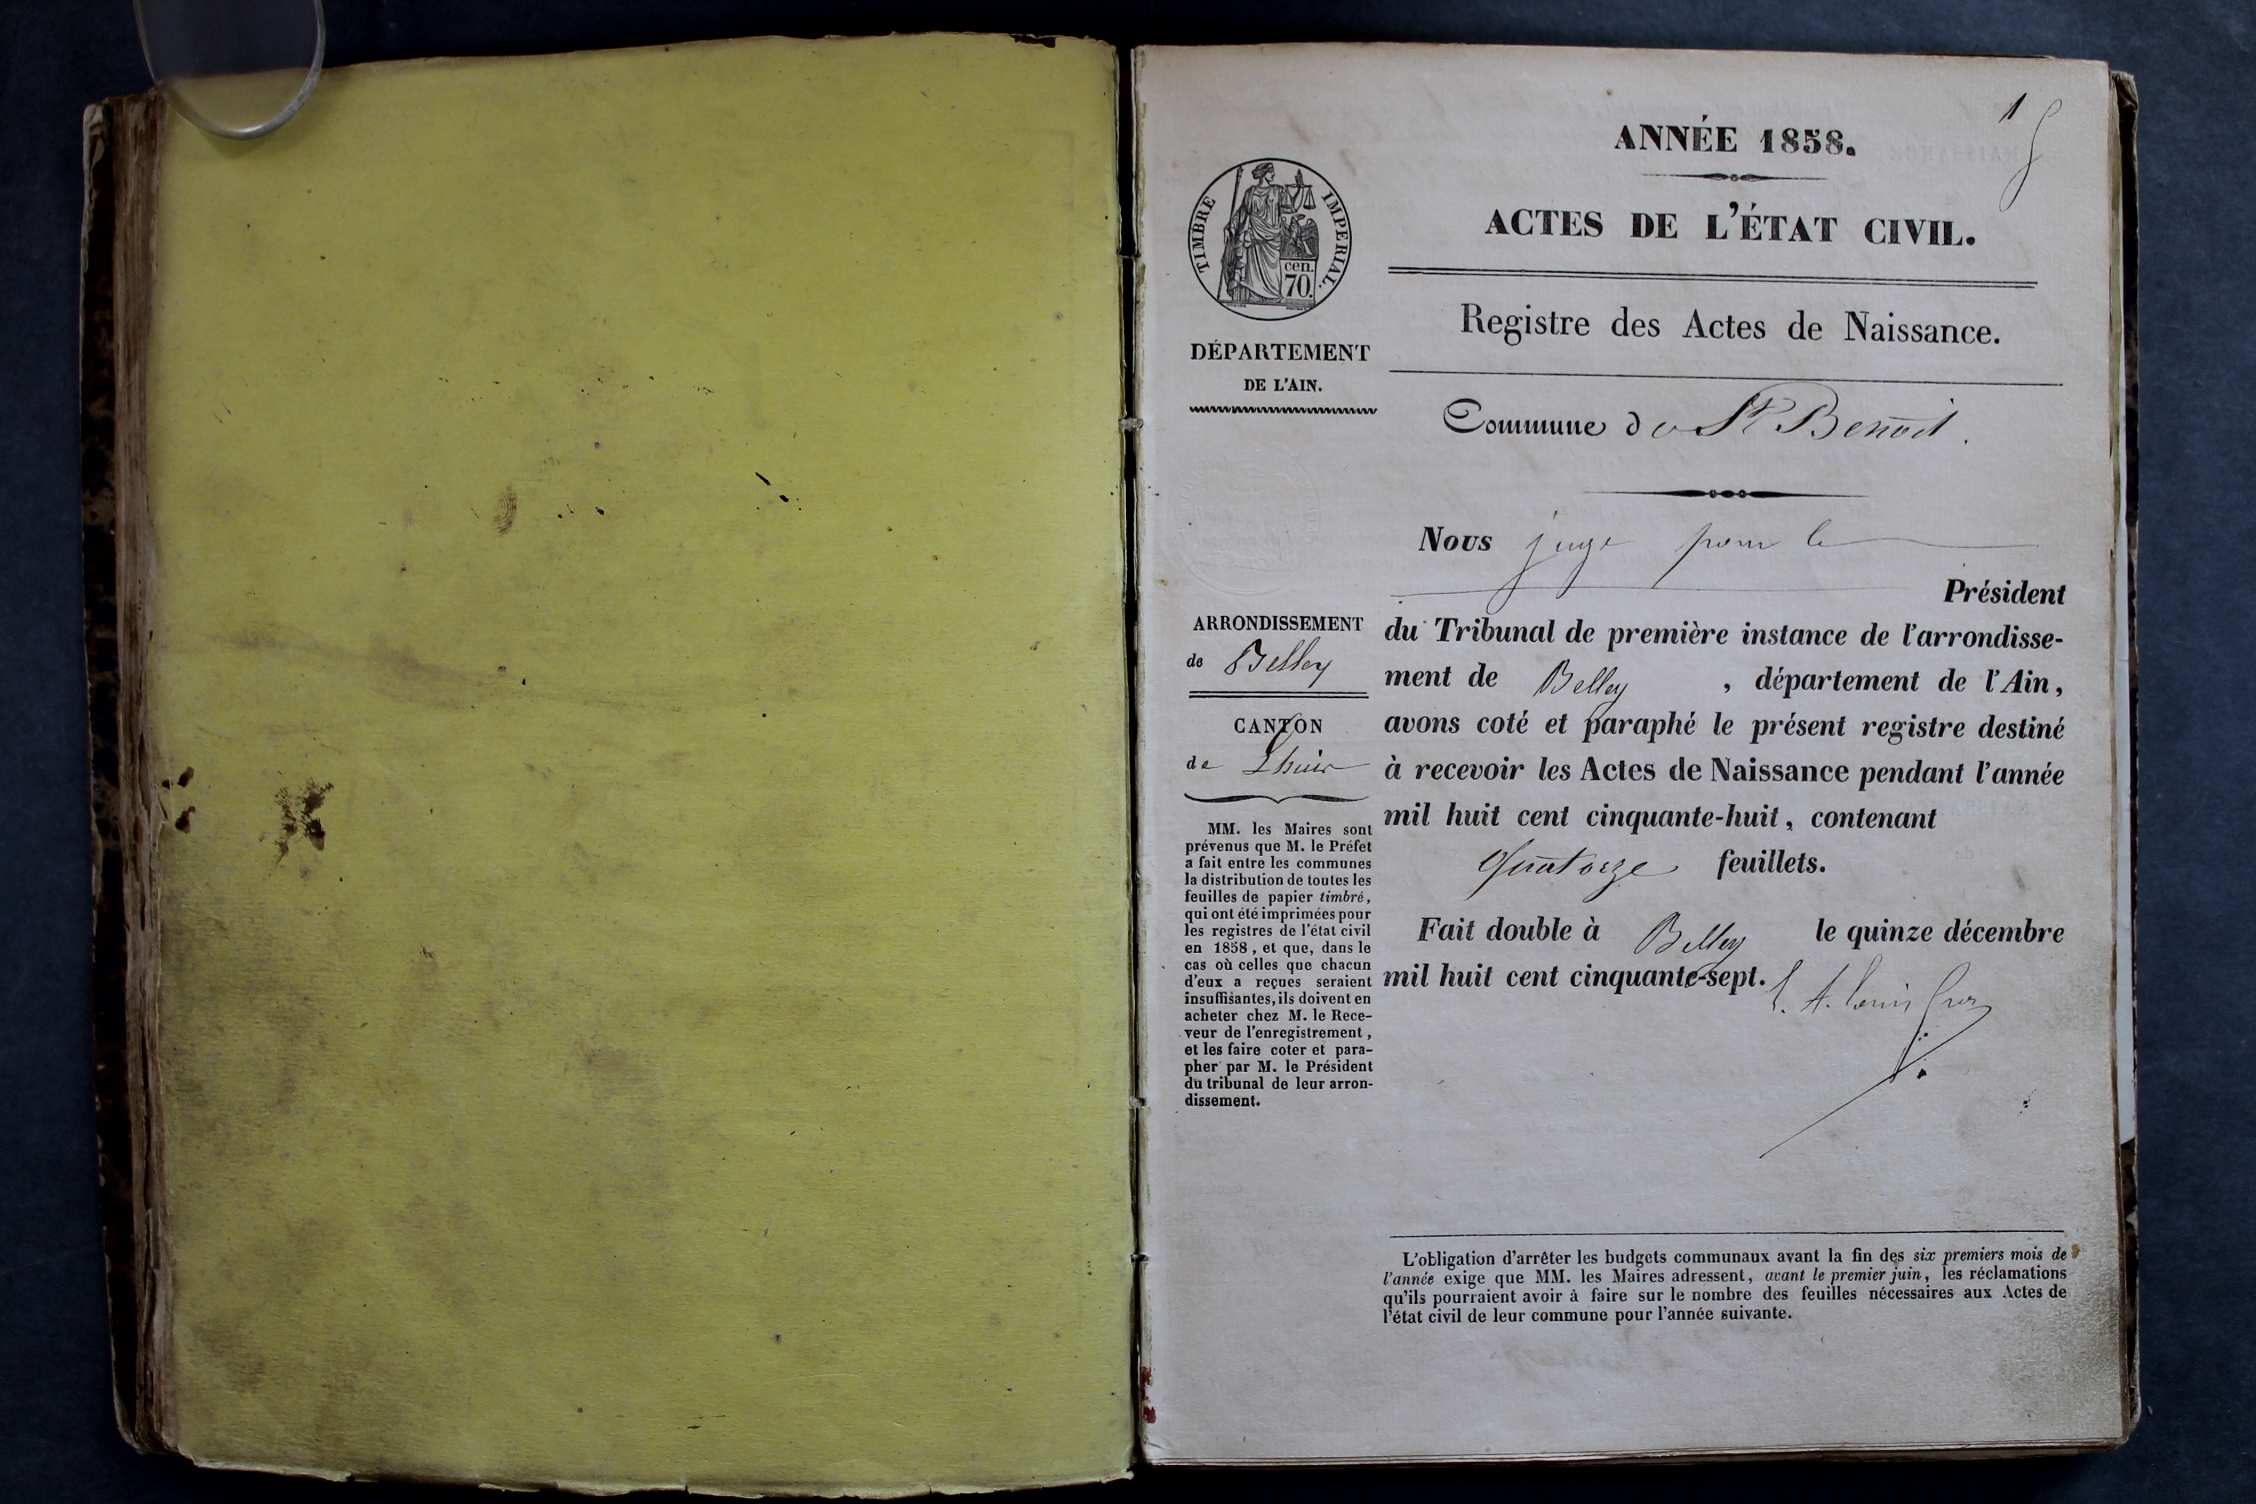 1
ANNÉE 1858.
ACTES DE L'ÉTAT CIVIL.
TIMBRE IMPERIAL.
cen.
70.
DÉPARTEMENT
DE L'AIN.
Registre des Actes de Naissance.
Commune de St Benoit.
Nous juge pour le
Président
du Tribunal de première instance de l'arrondisse-
ment de Belley, département de l'Ain,
avons coté et paraphé le présent registre destiné
à recevoir les Actes de Naissance pendant l'année
mil huit cent cinquante-huit, contenant
Quatorze feuillets.
Fait double à Belley le quinze décembre
mil huit cent cinquante-sept.
ARRONDISSEMENT
de Belley
CANTON
de Lhuis
MM. les Maires sont
prévenus que M. le Préfet
a fait entre les communes
la distribution de toutes les
feuilles de papier timbré,
qui ont été imprimées pour
les registres de l'état civil
en 1858, et que, dans le
cas où celles que chacun
d'eux a reçues seraient
insuffisantes, ils doivent en
acheter chez M. le Rece-
veur de l'enregistrement,
et les faire coter et para-
pher par M. le Président
du tribunal de leur arron-
dissement.
L'obligation d'arrêter les budgets communaux avant la fin des six premiers mois de
l'année exige que MM. les Maires adressent, avant le premier juin, les réclamations
qu'ils pourraient avoir à faire sur le nombre des feuilles nécessaires aux Actes de
l'état civil de leur commune pour l'année suivante.